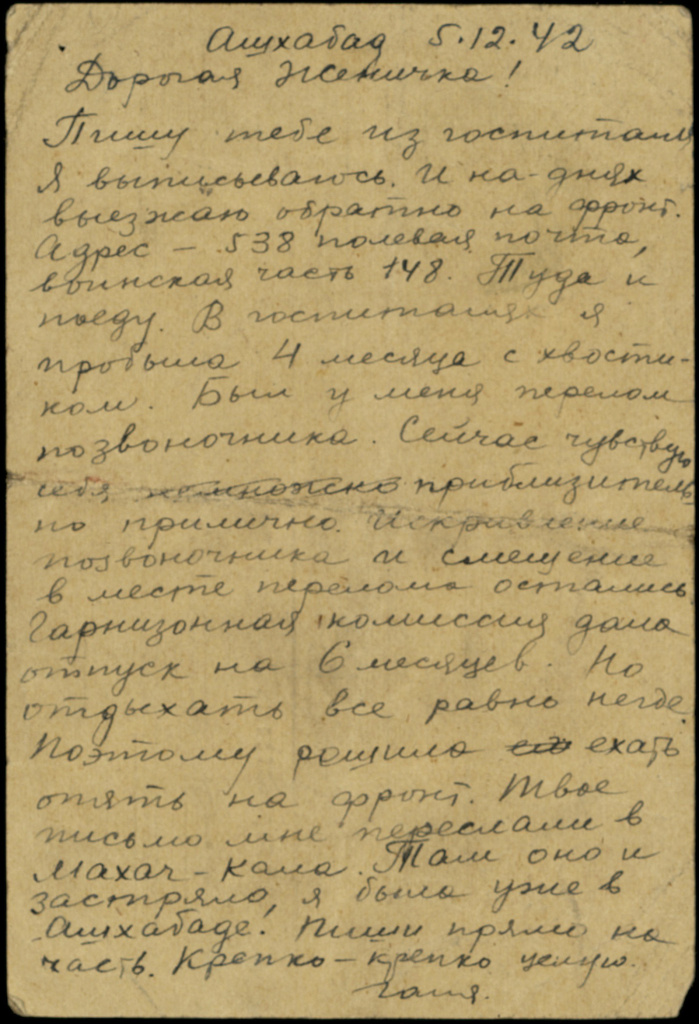 Ашхабад 5.12.42
Дорогая Женичка!
Пишу тебе из госпиталя
Я выписываюсь. И на-днях
выезжаю обратно на фронт.
Адрес – 538 полевая почта,
воинская часть 148. Туда и
поеду. В госпиталях я
пробыла 4 месяца с хвости-
ком. Был у меня перелом
позвоночника. Сейчас чувствую
себя немножко приблизитель
но прилично. Искривление
позвоночника и смещение
в месте перелома остались
Гарнизонная комиссия дала
отпуск на 6 месяцев. Но
отдыхать все равно негде.
Поэтому решила ехать
опять на фронт. Твое
письмо мне переслали в
Махач-Кала. Там оно и
застряло, я была уже в
Ашхабаде! Пиши прямо на
часть. Крепко-крепко целую.
Галя.